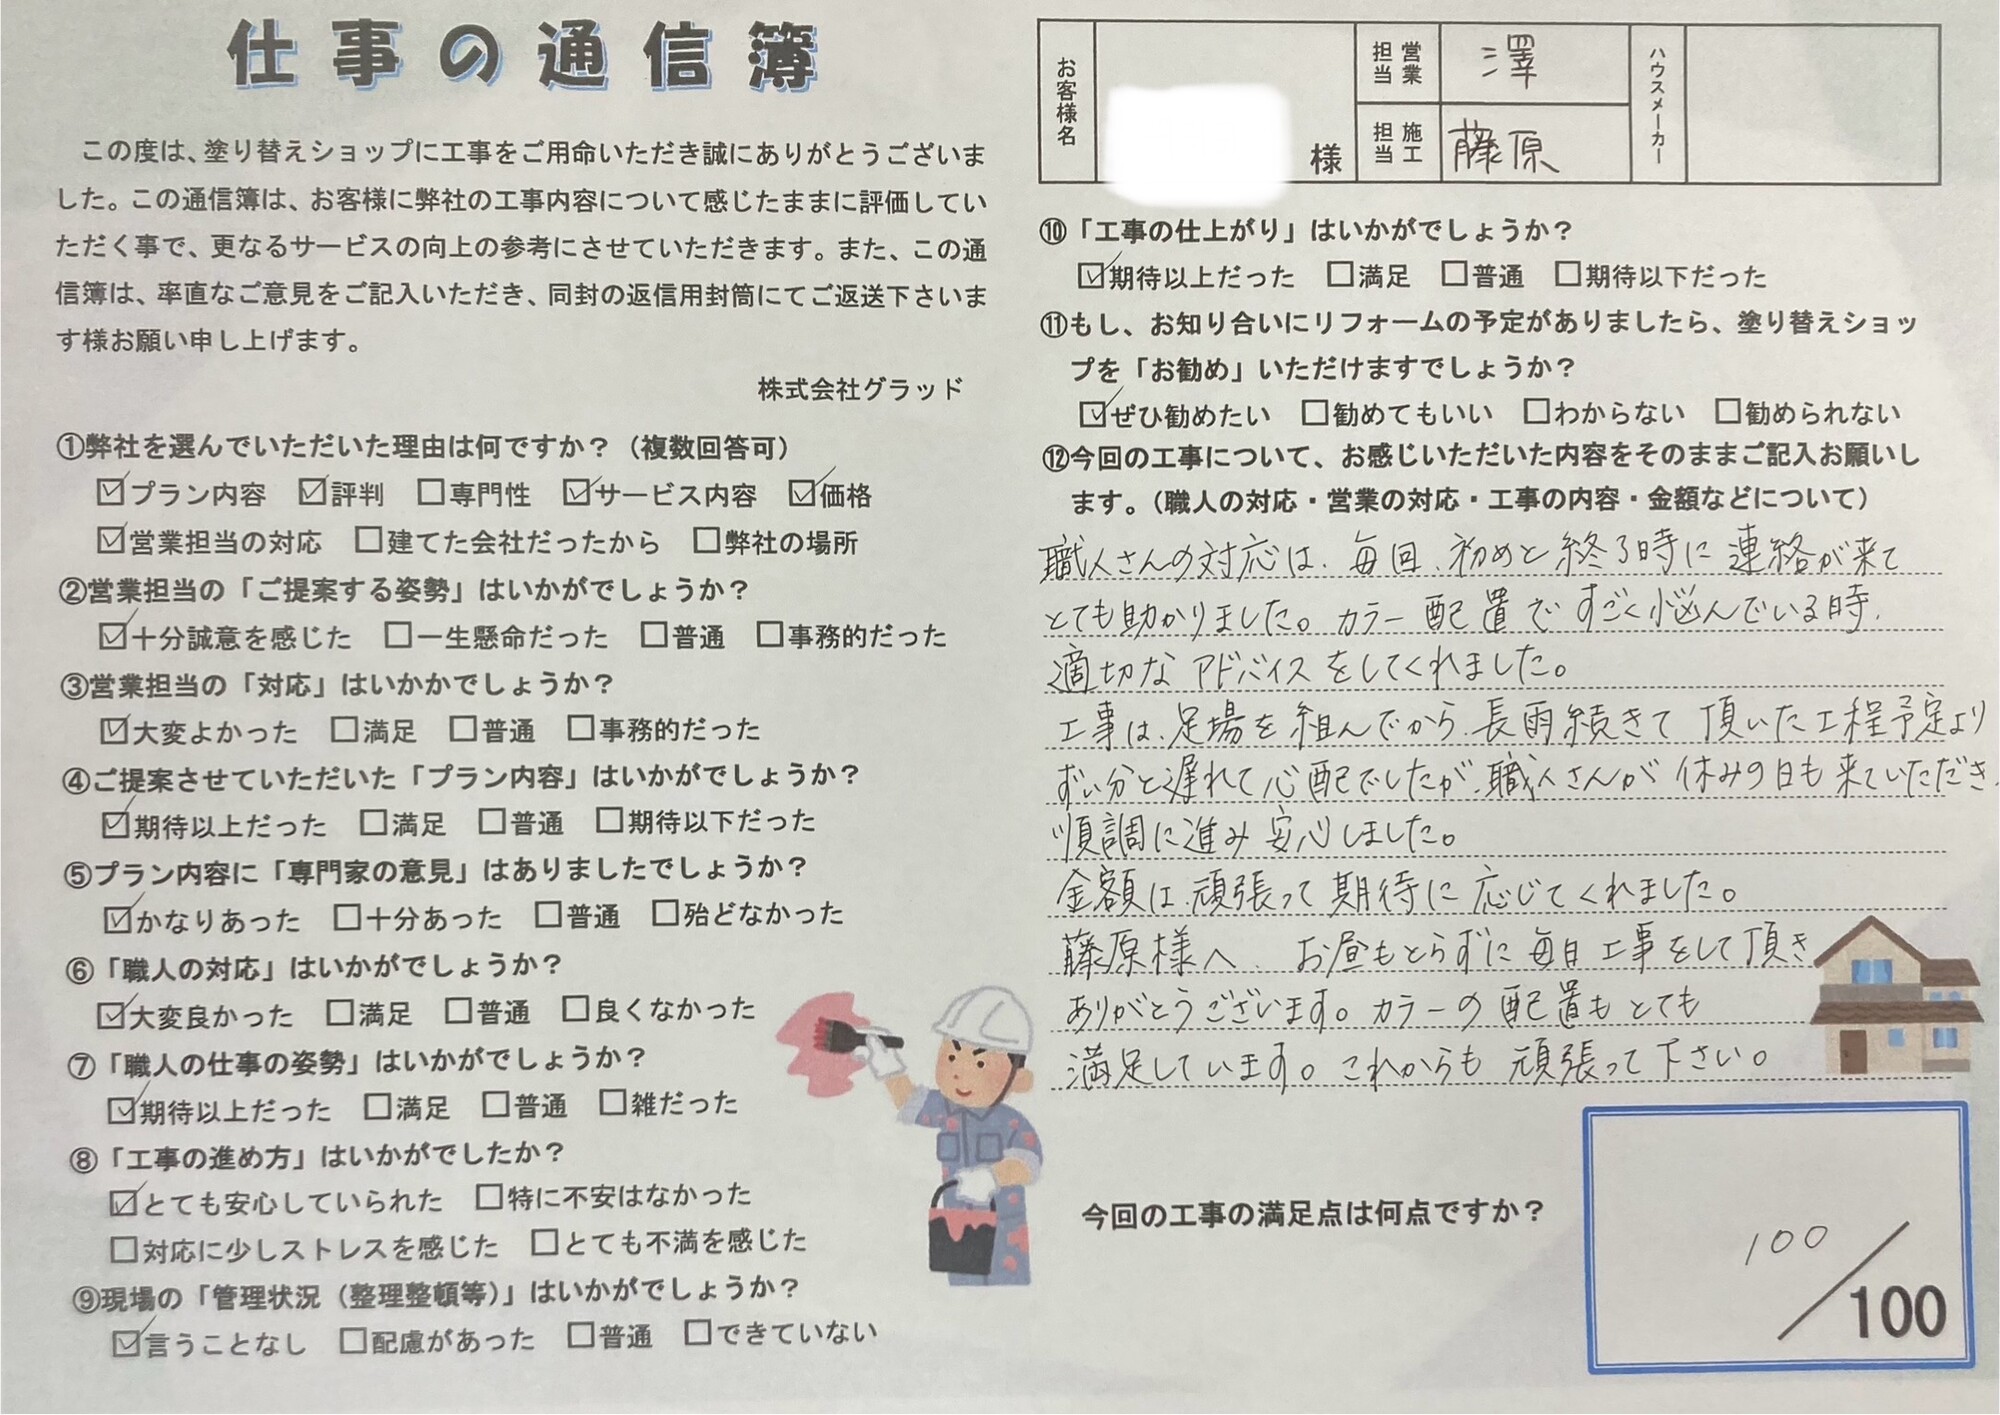 仕事の通信簿
この度は、塗り替えショップに工事をご用命いただき誠にありがとうございま
した。この通信簿は、お客様に弊社の工事内容について感じたままに評価してい
ただく事で、更なるサービスの向上の参考にさせていただきます。また、この通
信簿は、率直なご意見をご記入いただき、同封の返信用封筒にてご返送下さいま
す様お願い申し上げます。
株式会社グラッド
①弊社を選んでいただいた理由は何ですか？（複数回答可）
☑プラン内容 ☑評判 □専門性 ☑サービス内容 ☑価格
☑営業担当の対応 □建てた会社だったから □弊社の場所
②営業担当の「ご提案する姿勢」はいかがでしょうか？
☑十分誠意を感じた □一生懸命だった □普通 □事務的だった
③営業担当の「対応」はいかかでしょうか？
☑大変よかった □満足 □普通 □事務的だった
④ご提案させていただいた「プラン内容」はいかがでしょうか？
☑期待以上だった □満足 □普通 □期待以下だった
⑤プラン内容に「専門家の意見」はありましたでしょうか？
☑かなりあった □十分あった □普通 □殆どなかった
⑥「職人の対応」はいかがでしょうか？
☑大変良かった □満足 □普通 □良くなかった
⑦「職人の仕事の姿勢」はいかがでしょうか？
☑期待以上だった □満足 □普通 □雑だった
⑧「工事の進め方」はいかがでしたか？
☑とても安心していられた □特に不安はなかった
□対応に少しストレスを感じた □とても不満を感じた
⑨現場の「管理状況（整理整頓等）」はいかがでしょうか？
☑言うことなし □配慮があった □普通 □できていない
お客様名 様 営業担当 澤 ハウスメーカー
施工担当 藤原
⑩「工事の仕上がり」はいかがでしょうか？
☑期待以上だった □満足 □普通 □期待以下だった
⑪もし、お知り合いにリフォームの予定がありましたら、塗り替えショッ
プを「お勧め」いただけますでしょうか？
☑ぜひ勧めたい □勧めてもいい □わからない □勧められない
⑫今回の工事について、お感じいただいた内容をそのままご記入お願いし
ます。（職人の対応・営業の対応・工事の内容・金額などについて）
職人さんの対応は、毎回、初めと終了時に連絡が来て
とても助かりました。カラー配置ですごく悩んでいる時、
適切なアドバイスをしてくれました。
工事は、足場を組んでから、長雨続きて頂いた工程予定より
ずい分と遅れて心配でしたが、職人さんが休みの日も来ていただき、
順調に進み安心しました。
金額は、頑張って期待に応じてくれました。
藤原様へ、お昼もとらずに毎日工事をして頂き
ありがとうございます。カラーの配置もとても
満足しています。これからも頑張って下さい。
今回の工事の満足点は何点ですか？
100／100